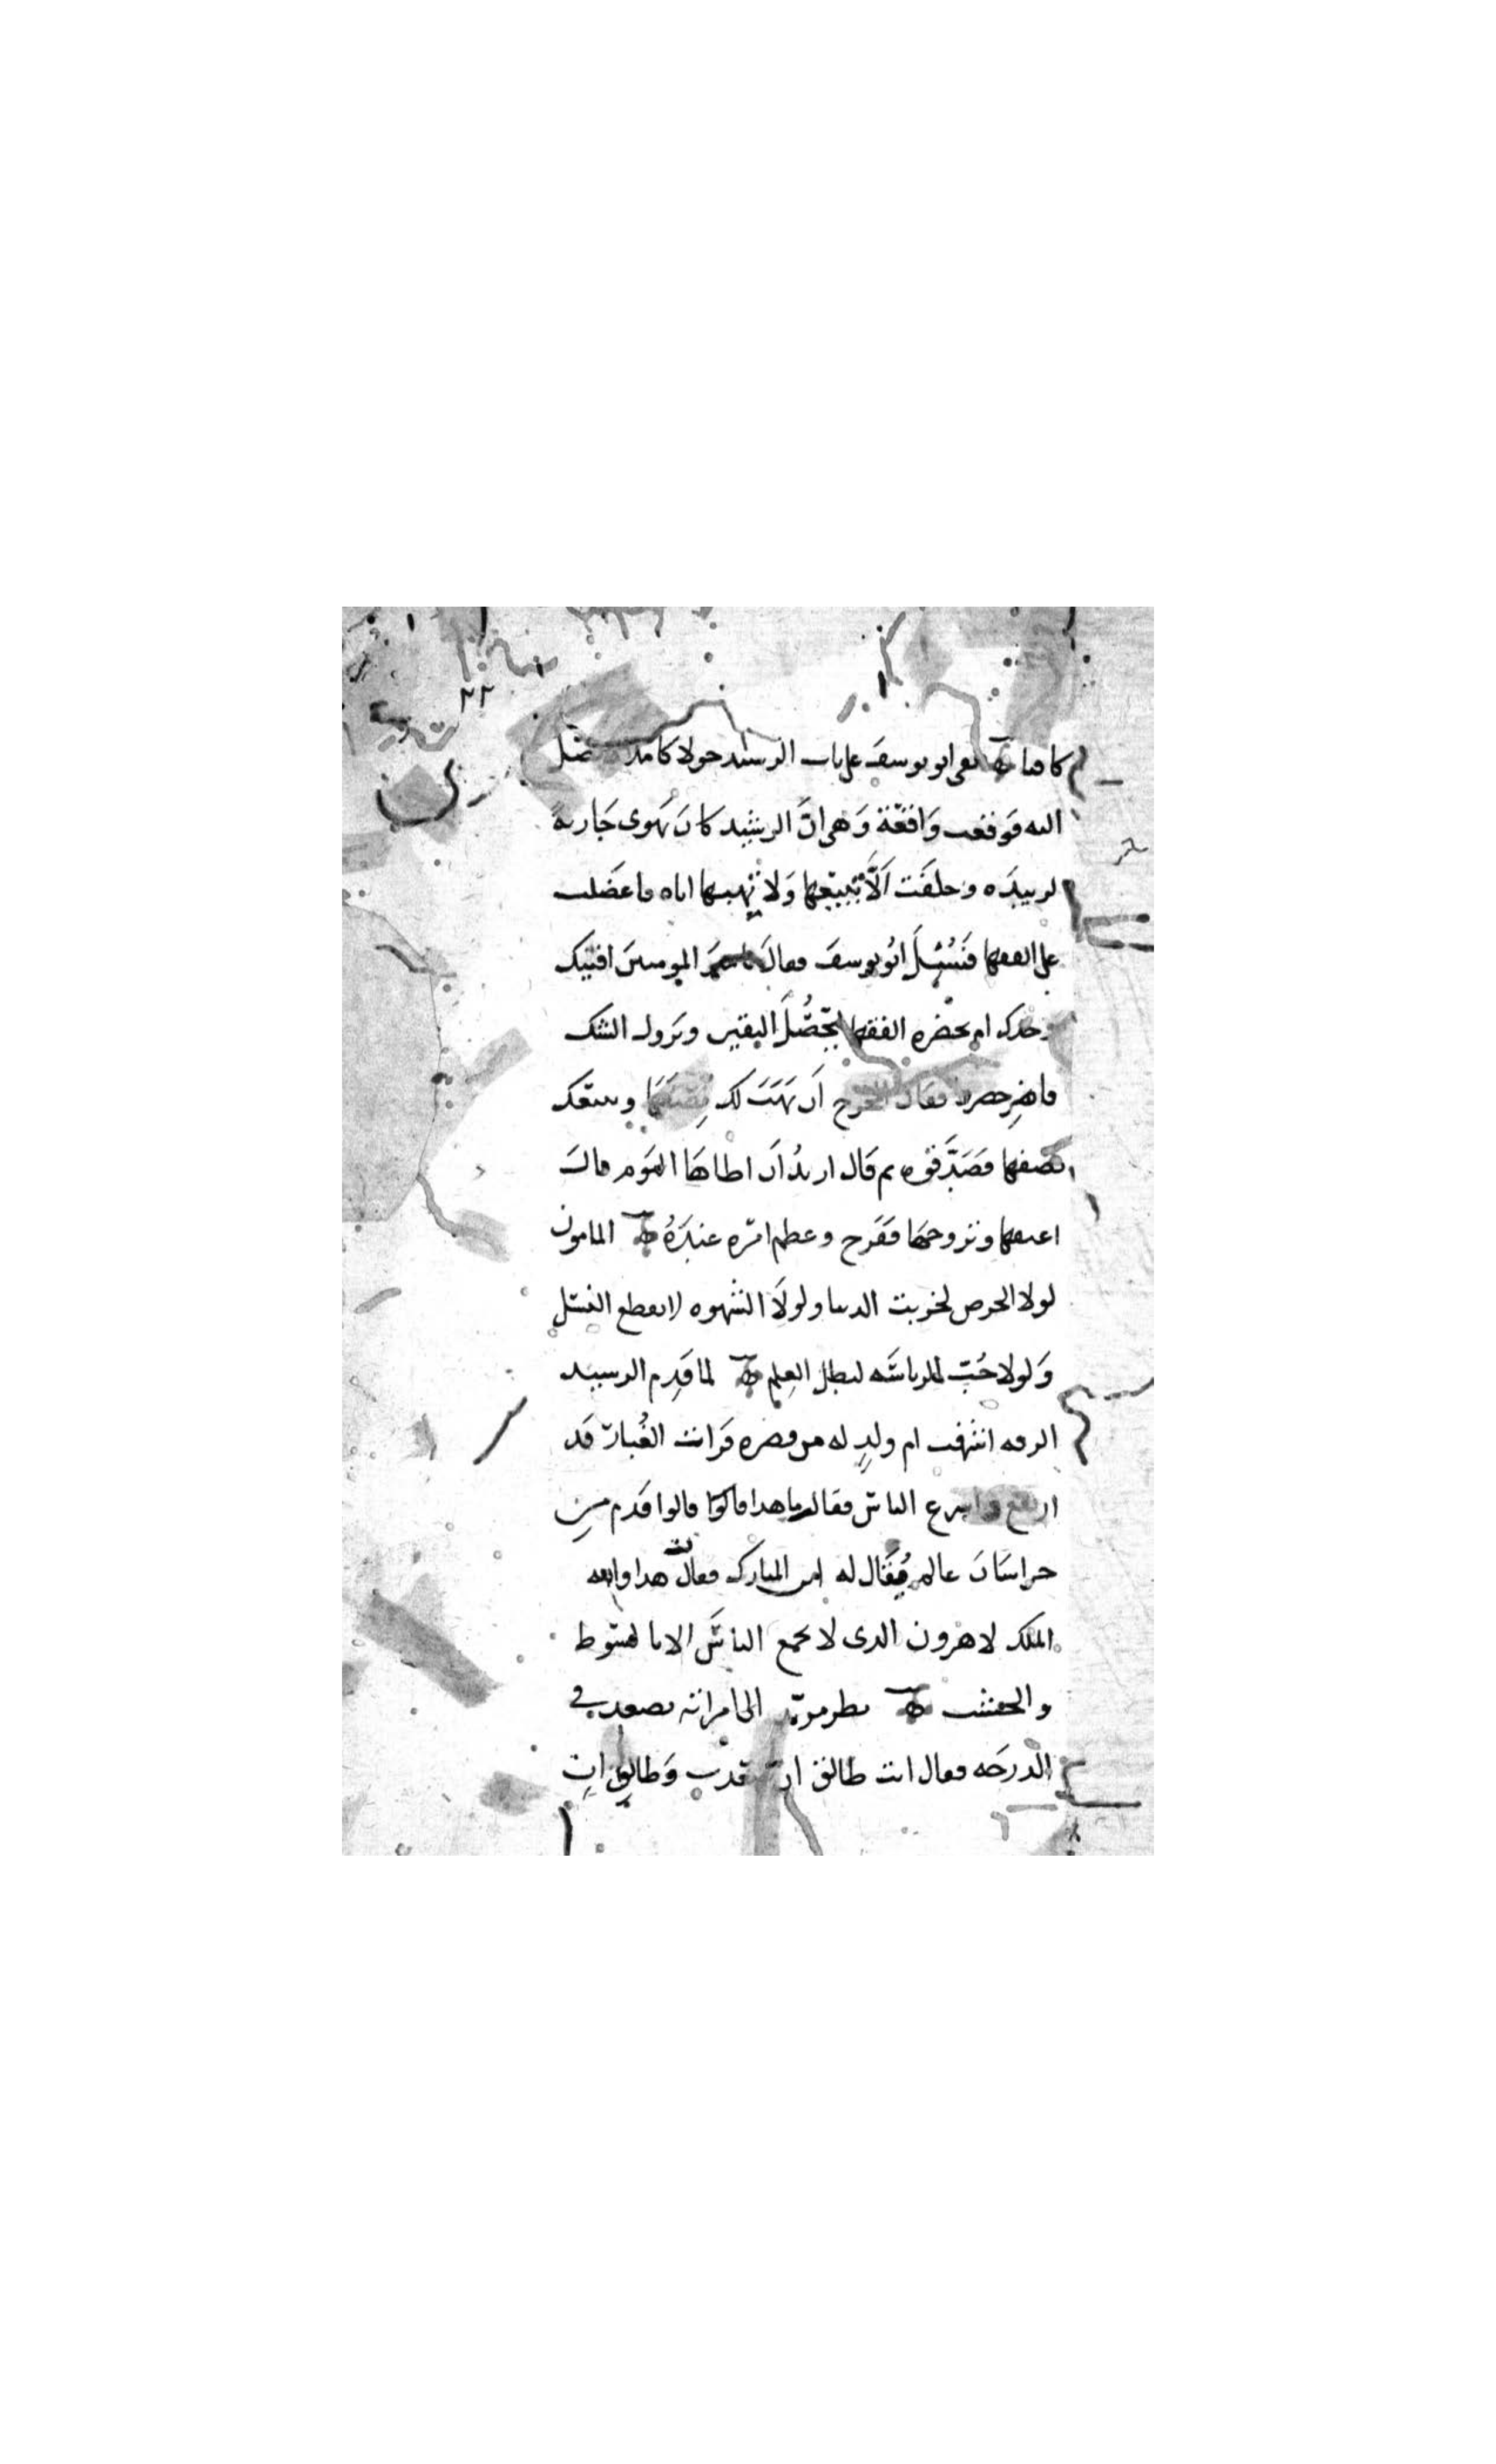 ٢٢
كافيا بقى ابو يوسف على باب الرشيد حولا كاملا لا يصل
اليه فوقعت واقعة وهى ان الرشيد كان يهوى جارية
لزبيده وحلفت ألا تبيعها ولا تهبها اياه فاعضلت
على الفقها فسئل ابو يوسف فقال يا امير المومنين افتيك
وحدك ام بحضره الفقها ليحصل اليقين ويزول الشك
فاحضروا فقال المخرج أن تهب لك نصفها وتبيعك
نصفها فصدقوه ثم قال اريد أن اطاها اليوم قال
اعتقها وتزوجها ففرح وعظم امره عنده المامون
لولا الحرص لخربت الدنيا ولولا الشهوه لانقطع النسل
ولولا حب الرياسه لبطل العلم لما قدم الرشيد
الرقه اشرفت ام ولد له من قصره فرات الغبار قد
ارتفع واسرع الناس فقالت ما هذا قالوا قدم من
خراسان عالم يقال له ابن المبارك فقالت هذا والله
الملك لا هرون الذى لا يجمع الناس الا بالسوط
والخشب نظر مريد الى امراته تصعد في
الدرجه فقال انت طالق ان صعدت وطالق ان